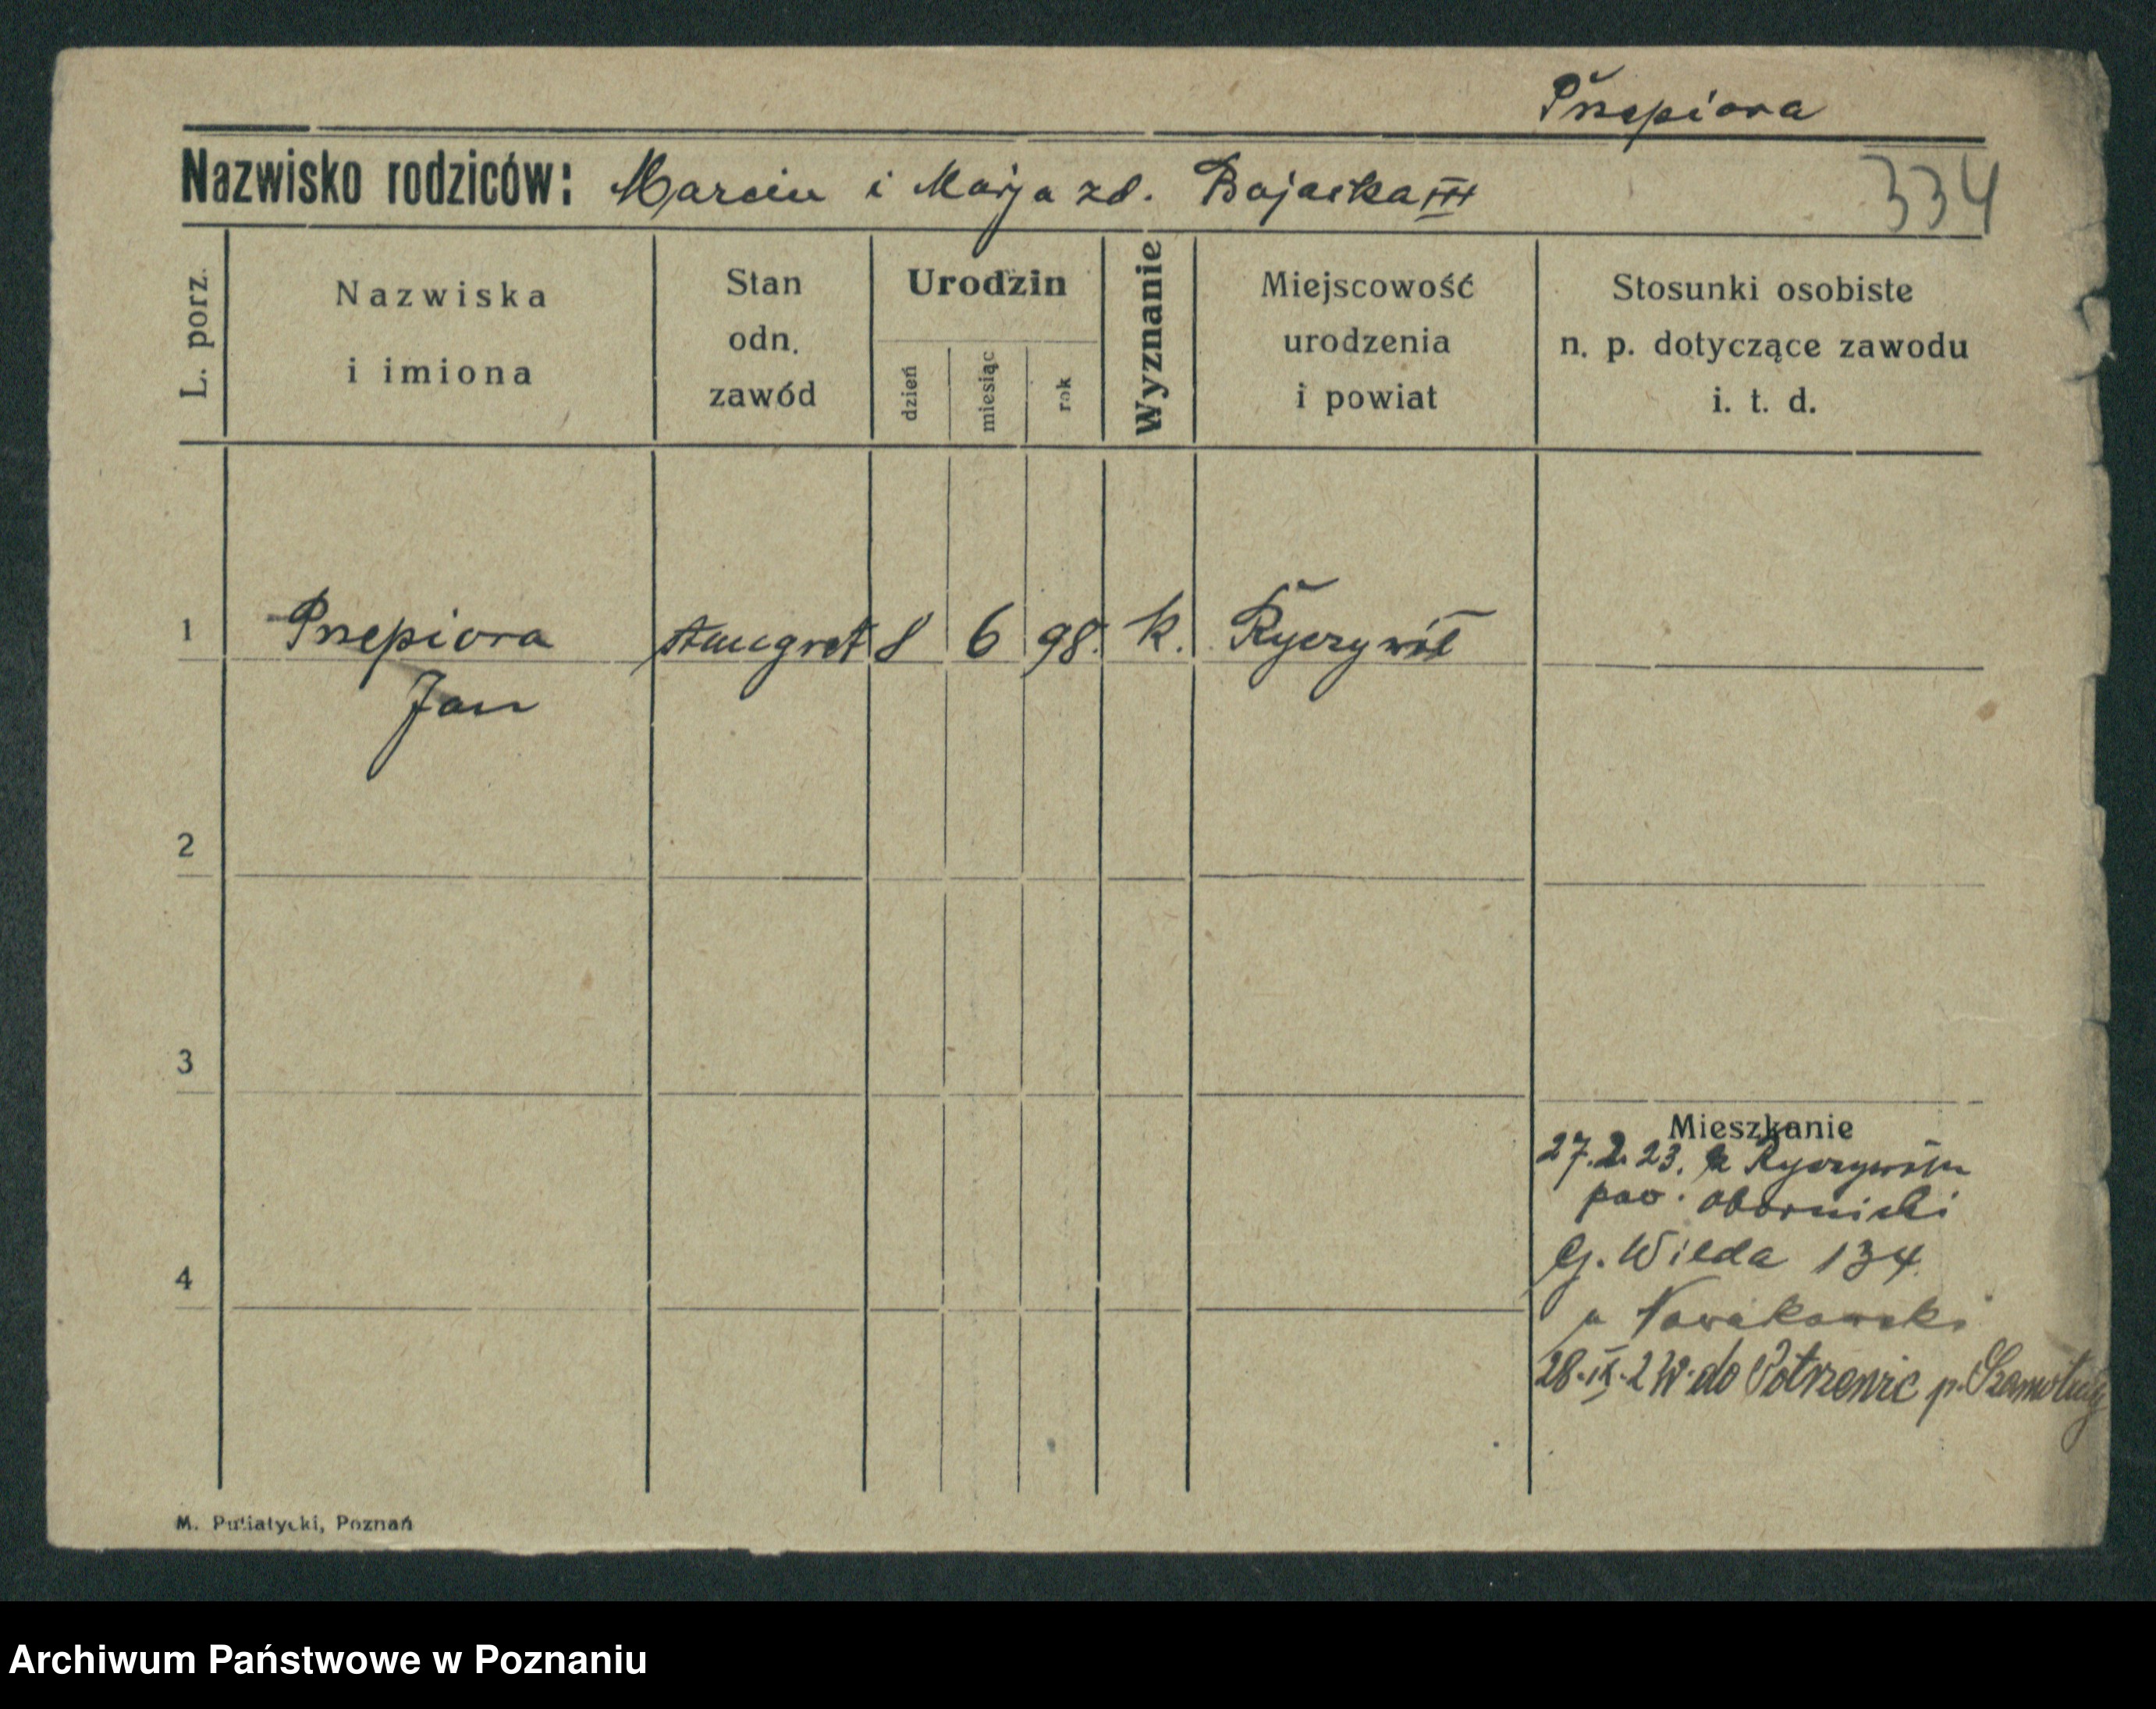 Przepiora
Nazwisko rodziców: Marcin i Marja zd. Bajaska III
334
L. porz.
Nazwiska
i imiona
Stan
odn.
zawód
Urodzin
dzień
miesiąc
rok
Wyznanie
Miejscowość
urodzenia
i powiat
Stosunki osobiste
n. p. dotyczące zawodu
i. t. d.
1 Przepiora stangret 8 6 98. k. Ryczywół
Jan
2
3
4
Mieszkanie
27.2.23. z Ryczywołu
pow. obornicki
G. Wilda 134
u Nowakowski
28.IX.2 W. do p. Szamotuły
M. Putiatycki, Poznań
Archiwum Państwowe w Poznaniu